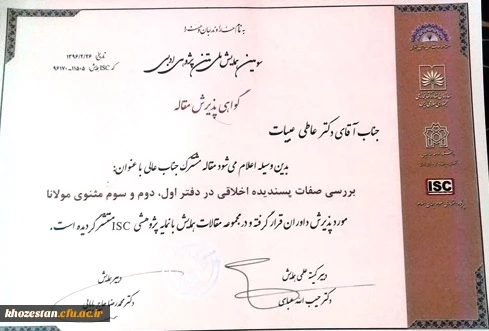 به نام خداوند جان و خرد
سومین همایش ملی متن پژوهی ادبی
تاریخ ۱۳۹۶/۲/۲۶
کد ISC همایش ۱۱۵۰۵-۹۶۱۷۰
گواهی پذیرش مقاله
جناب آقای دکتر عاطی عبیات
بدین وسیله اعلام می‌شود مقاله مشترک جناب عالی با عنوان:
بررسی صفات پسندیده اخلاقی در دفتر اول، دوم و سوم مثنوی مولانا
مورد پذیرش داوران قرار گرفته و در مجموعه مقالات همایش با نمایه پژوهشی ISC منتشر گردیده است.
دبیر کمیته علمی همایش
دکتر حبیب الله عباسی
دبیر همایش
دکتر محمدرضا حاج بابایی
ISC
khozestan.cfu.ac.ir